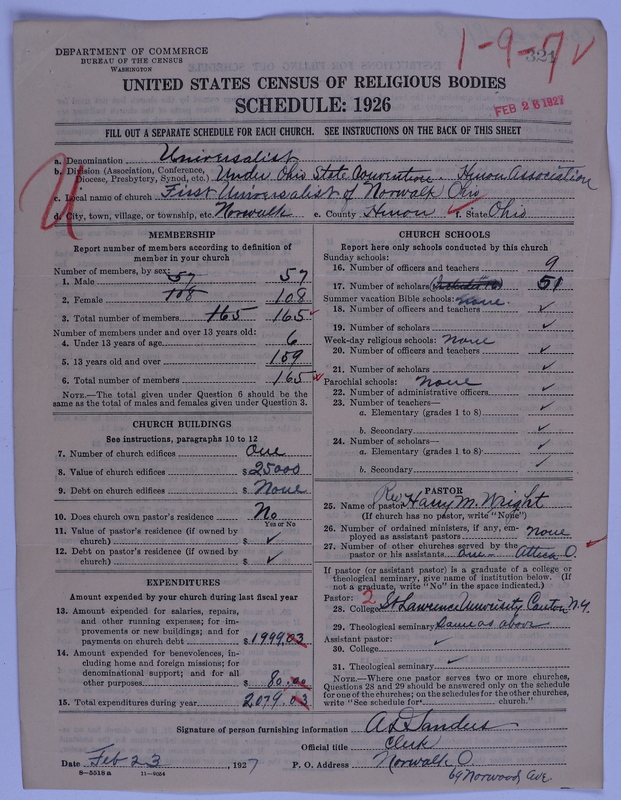 DEPARTMENT OF COMMERCE
BUREAU OF THE CENSUS
WASHINGTON
1-9-7 v
321
UNITED STATES CENSUS OF RELIGIOUS BODIES
SCHEDULE: 1926
FEB 26 1927
FILL OUT A SEPARATE SCHEDULE FOR EACH CHURCH. SEE INSTRUCTIONS ON THE BACK OF THIS SHEET
U
a. Denomination Universalist
b. Division (Association, Conference, Diocese, Presbytery, Synod, etc.) Under Ohio State Convention. Huron Association
c. Local name of church First Universalist of Norwalk Ohio
d. City, town, village, or township, etc. Norwalk e. County Huron f. State Ohio
MEMBERSHIP
Report number of members according to definition of
member in your church
Number of members, by sex:
1. Male 57 57
2. Female 108 108
3. Total number of members 165 165
Number of members under and over 13 years old:
4. Under 13 years of age 6
5. 13 years old and over 159
6. Total number of members 165
NOTE.—The total given under Question 6 should be
same as the total of males and females given under Question 3.
CHURCH BUILDINGS
See instructions, paragraphs 10 to 12
7. Number of church edifices One
8. Value of church edifices $ 25000
9. Debt on church edifices $ None
10. Does church own pastor's residence No
Yes or No
11. Value of pastor's residence (if owned by
church) $ ✓
12. Debt on pastor's residence (if owned by
church) $ ✓
EXPENDITURES
Amount expended by your church during last fiscal year
13. Amount expended for salaries, repairs,
and other running expenses; for im-
provements or new buildings; and for
payments on church debt $ 1999.03
14. Amount expended for benevolences, in-
cluding home and foreign missions; for
denominational support; and for all
other purposes $ 80.00
15. Total expenditures during year 2079.03
CHURCH SCHOOLS
Report here only schools conducted by this church
Sunday schools:
16. Number of officers and teachers 9
17. Number of scholars 51
Summer vacation Bible schools: none.
18. Number of officers and teachers ✓
19. Number of scholars ✓
Week-day religious schools: none
20. Number of officers and teachers ✓
21. Number of scholars ✓
Parochial schools: none
22. Number of administrative officers ✓
23. Number of teachers—
a. Elementary (grades 1 to 8) ✓
b. Secondary ✓
24. Number of scholars—
a. Elementary (grades 1 to 8) ✓
b. Secondary ✓
PASTOR
25. Name of pastor Rev Harry M. Wright
(If church has no pastor, write "None")
26. Number of ordained ministers, if any, em-
ployed as assistant pastors none
27. Number of other churches served by the
pastor or his assistants One - Attica O.
If pastor (or assistant pastor) is a graduate of a college or
theological seminary, give name of institution below. (If
not a graduate, write "No" in the space indicated.)
Pastor: 2
28. College St Lawrence University Canton N.Y.
29. Theological seminary Same as above
Assistant pastor:
30. College ✓
31. Theological seminary ✓
NOTE.—Where one pastor serves two or more churches,
Questions 28 and 29 should be answered only on the schedule
for one of the churches; on the schedules for the other churches,
write "See schedule for church."
Signature of person furnishing information A L
Official title Clerk
Date Feb 23, 1927 P. O. Address Norwalk O
8-5518a 11-9054
69 Norwood Ave